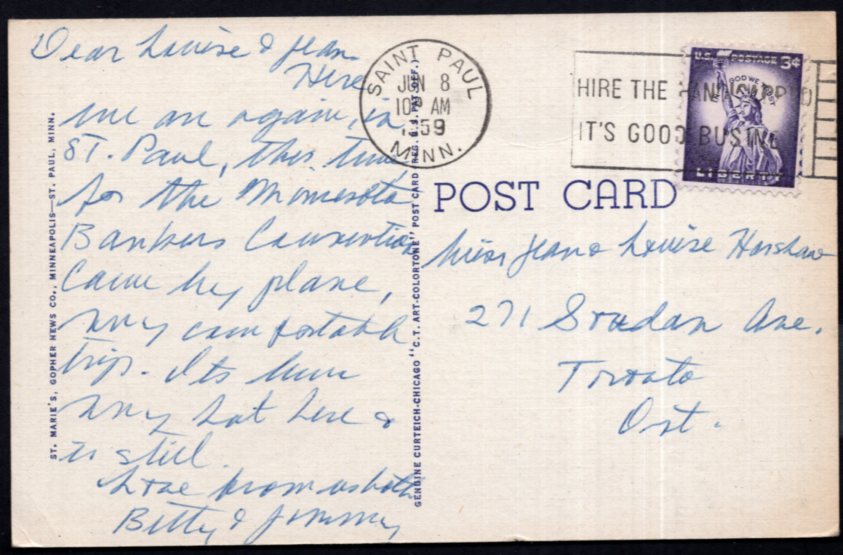 Dear Louise & Jean
Here
we are again, in
ST. Paul, this time
for the Minnesota
Bankers Convention
Came by plane,
very comfortable
trip. Its been
very hot here &
is still.
Love from us both
Betty & Jimmy
ST. MARIE'S, GOPHER NEWS CO., MINNEAPOLIS—ST. PAUL, MINN.
GENUINE CURTEICH-CHICAGO "C.T. ART-COLORTONE" POST CARD (REG. U.S. PAT. OFF.)
SAINT PAUL
JUN 8
10 AM
1959
MINN.
HIRE THE HANDICAPPED
IT'S GOOD BUSINE
U.S. POSTAGE 3¢
IN GOD WE TRUST
LIBERTY
POST CARD
Miss Jean & Louise Harshaw
271 Soudan Ave.
Toronto
Ont.